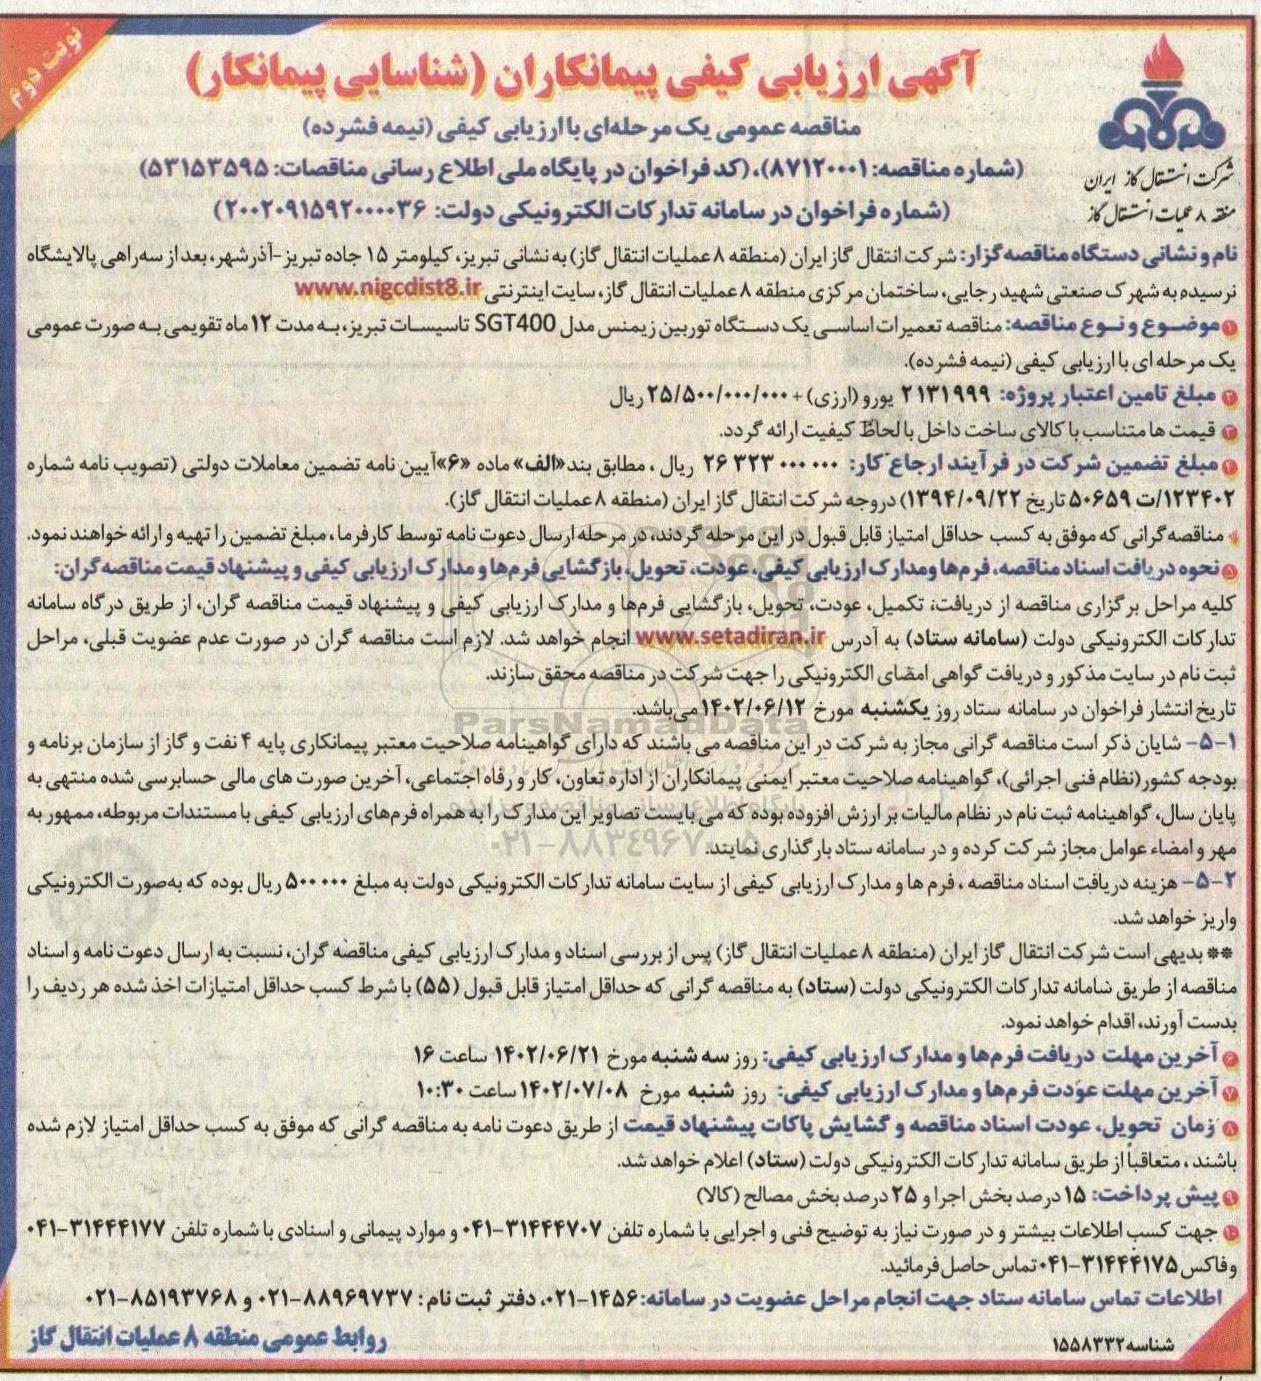 نوبت دوم
آگهی ارزیابی کیفی پیمانکاران (شناسایی پیمانکار)
مناقصه عمومی یک مرحله‌ای با ارزیابی کیفی (نیمه فشرده)
(شماره مناقصه: ۸۷۱۲۰۰۰۱)، (کد فراخوان در پایگاه ملی اطلاع رسانی مناقصات: ۵۳۱۵۳۵۹۵)
(شماره فراخوان در سامانه تدارکات الکترونیکی دولت: ۲۰۰۲۰۹۱۵۹۲۰۰۰۰۳۶)
شرکت انتقال گاز ایران
منطقه ۸ عملیات انتقال گاز
نام و نشانی دستگاه مناقصه‌گزار: شرکت انتقال گاز ایران (منطقه ۸ عملیات انتقال گاز) به نشانی تبریز، کیلومتر ۱۵ جاده تبریز-آذرشهر، بعد از سه‌راهی پالایشگاه
نرسیده به شهرک صنعتی شهید رجایی، ساختمان مرکزی منطقه ۸ عملیات انتقال گاز، سایت اینترنتی www.nigcdist8.ir
۱ موضوع و نوع مناقصه: مناقصه تعمیرات اساسی یک دستگاه توربین زیمنس مدل SGT400 تاسیسات تبریز، به مدت ۱۲ ماه تقویمی به صورت عمومی
یک مرحله ای با ارزیابی کیفی (نیمه فشرده).
۲ مبلغ تامین اعتبار پروژه: ۲۱۳۱۹۹۹ یورو (ارزی) + ۲۵/۵۰۰/۰۰۰/۰۰۰ ریال
۳ قیمت ها متناسب با کالای ساخت داخل با لحاظ کیفیت ارائه گردد.
۴ مبلغ تضمین شرکت در فرآیند ارجاع کار: ۲۶۳۲۳۰۰۰۰۰۰ ریال ، مطابق بند «الف» ماده «۶» آیین نامه تضمین معاملات دولتی (تصویب نامه شماره
۱۲۳۴۰۲/ت ۵۰۶۵۹ تاریخ ۱۳۹۴/۰۹/۲۲) در وجه شرکت انتقال گاز ایران (منطقه ۸ عملیات انتقال گاز).
مناقصه گرانی که موفق به کسب حداقل امتیاز قابل قبول در این مرحله گردند، در مرحله ارسال دعوت نامه توسط کارفرما، مبلغ تضمین را تهیه و ارائه خواهند نمود.
۵ نحوه دریافت اسناد مناقصه، فرم‌ها و مدارک ارزیابی کیفی، عودت، تحویل، بازگشایی فرم‌ها و مدارک ارزیابی کیفی و پیشنهاد قیمت مناقصه‌گران:
کلیه مراحل برگزاری مناقصه از دریافت، تکمیل، عودت، تحویل، بازگشایی فرم‌ها و مدارک ارزیابی کیفی و پیشنهاد قیمت مناقصه گران، از طریق درگاه سامانه
تدارکات الکترونیکی دولت (سامانه ستاد) به آدرس www.setadiran.ir انجام خواهد شد. لازم است مناقصه گران در صورت عدم عضویت قبلی، مراحل
ثبت نام در سایت مذکور و دریافت گواهی امضای الکترونیکی را جهت شرکت در مناقصه محقق سازند.
تاریخ انتشار فراخوان در سامانه ستاد روز یکشنبه مورخ ۱۴۰۲/۰۶/۱۲ می‌باشد.
ParsNamadData
۵-۱- شایان ذکر است مناقصه گرانی مجاز به شرکت در این مناقصه می باشند که دارای گواهینامه صلاحیت معتبر پیمانکاری پایه ۴ نفت و گاز از سازمان برنامه و
بودجه کشور(نظام فنی اجرائی)، گواهینامه صلاحیت معتبر ایمنی پیمانکاران از اداره تعاون، کار و رفاه اجتماعی، آخرین صورت های مالی حسابرسی شده منتهی به
پایان سال، گواهینامه ثبت نام در نظام مالیات بر ارزش افزوده بوده که می بایست تصاویر این مدارک را به همراه فرم‌های ارزیابی کیفی با مستندات مربوطه، ممهور به
مهر و امضاء عوامل مجاز شرکت کرده و در سامانه ستاد بارگذاری نمایند.
۰۲۱-۸۸۳۴۹۶۷۰-۵
۵-۲- هزینه دریافت اسناد مناقصه ، فرم ها و مدارک ارزیابی کیفی از سایت سامانه تدارکات الکترونیکی دولت به مبلغ ۵۰۰۰۰۰ ریال بوده که به‌صورت الکترونیکی
واریز خواهد شد.
** بدیهی است شرکت انتقال گاز ایران (منطقه ۸ عملیات انتقال گاز) پس از بررسی اسناد و مدارک ارزیابی کیفی مناقصه گران، نسبت به ارسال دعوت نامه و اسناد
مناقصه از طریق سامانه تدارکات الکترونیکی دولت (ستاد) به مناقصه گرانی که حداقل امتیاز قابل قبول (۵۵) با شرط کسب حداقل امتیازات اخذ شده هر ردیف را
بدست آورند، اقدام خواهد نمود.
۶ آخرین مهلت دریافت فرم‌ها و مدارک ارزیابی کیفی: روز سه شنبه مورخ ۱۴۰۲/۰۶/۲۱ ساعت ۱۶
۷ آخرین مهلت عودت فرم‌ها و مدارک ارزیابی کیفی: روز شنبه مورخ ۱۴۰۲/۰۷/۰۸ ساعت ۱۰:۳۰
۸ زمان تحویل، عودت اسناد مناقصه و گشایش پاکات پیشنهاد قیمت از طریق دعوت نامه به مناقصه گرانی که موفق به کسب حداقل امتیاز لازم شده
باشند ، متعاقباً از طریق سامانه تدارکات الکترونیکی دولت (ستاد) اعلام خواهد شد.
۹ پیش پرداخت: ۱۵ درصد بخش اجرا و ۲۵ درصد بخش مصالح (کالا)
۱۰ جهت کسب اطلاعات بیشتر و در صورت نیاز به توضیح فنی و اجرایی با شماره تلفن ۳۱۴۴۴۷۰۷-۰۴۱ و موارد پیمانی و اسنادی با شماره تلفن ۳۱۴۴۴۱۷۷-۰۴۱
و فاکس ۳۱۴۴۴۱۷۵-۰۴۱ تماس حاصل فرمائید.
اطلاعات تماس سامانه ستاد جهت انجام مراحل عضویت در سامانه: ۱۴۵۶-۰۲۱، دفتر ثبت نام : ۸۸۹۶۹۷۳۷-۰۲۱ و ۸۵۱۹۳۷۶۸-۰۲۱
شناسه ۱۵۵۸۳۳۲
روابط عمومی منطقه ۸ عملیات انتقال گاز